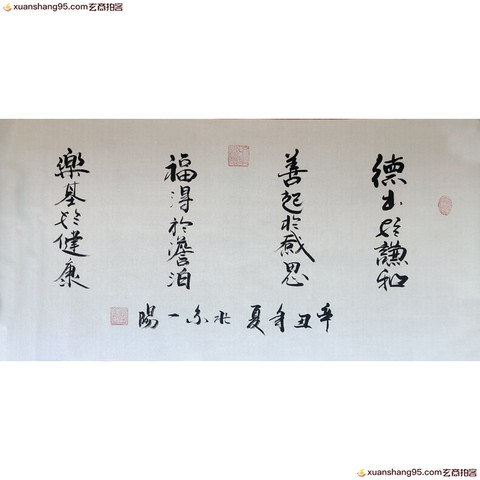 xuanshang95.com玄商拍客
德出於謙和
善起於感恩
福淂於澹泊
樂基於健康
辛丑年夏 一陽
xuanshang95.com玄商拍客